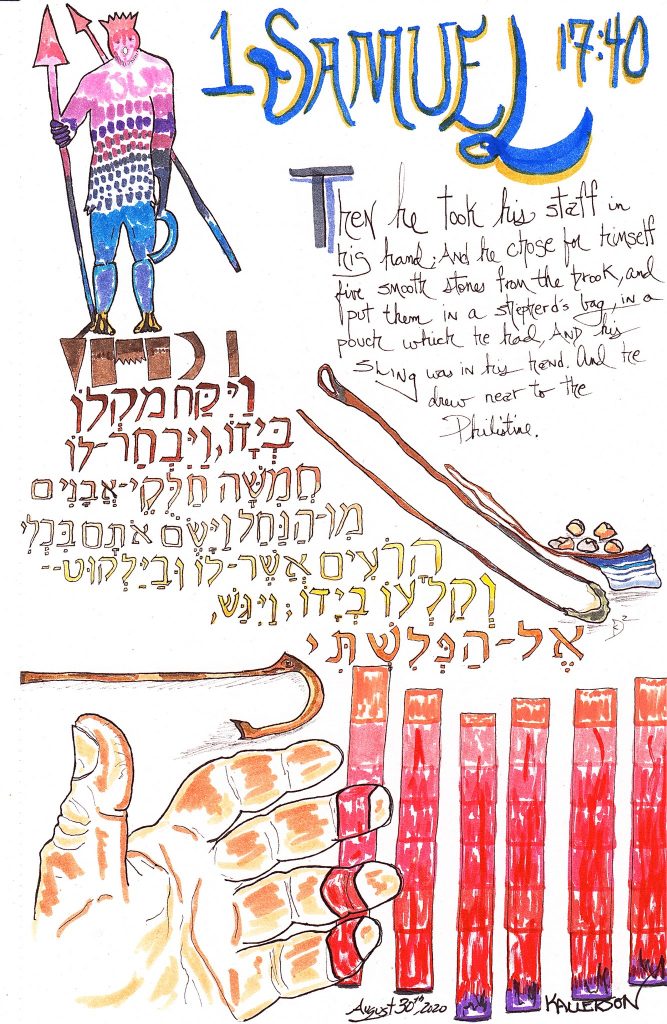 1 SAMUEL 17:40
Then he took his staff in
his hand; And he chose for himself
five smooth stones from the brook, and
put them in a shepherd's bag, in a
pouch which he had, AND his
SLING was in his hand. And he
drew near to the
Philistine.
וַיִּקַּח מַקְלוֹ
בְּיָדוֹ, וַיִּבְחַר-לוֹ
חֲמִשָּׁה חַלֻּקֵי-אֲבָנִים
מִן-הַנַּחַל וַיָּשֶׂם אֹתָם בִּכְלִי
הָרֹעִים אֲשֶׁר-לוֹ וּבַיַּלְקוּט--
וְקַלְעוֹ בְיָדוֹ; וַיִּגַּשׁ,
אֶל-הַפְּלִשְׁתִּי
August 30th 2020
KALLERSON